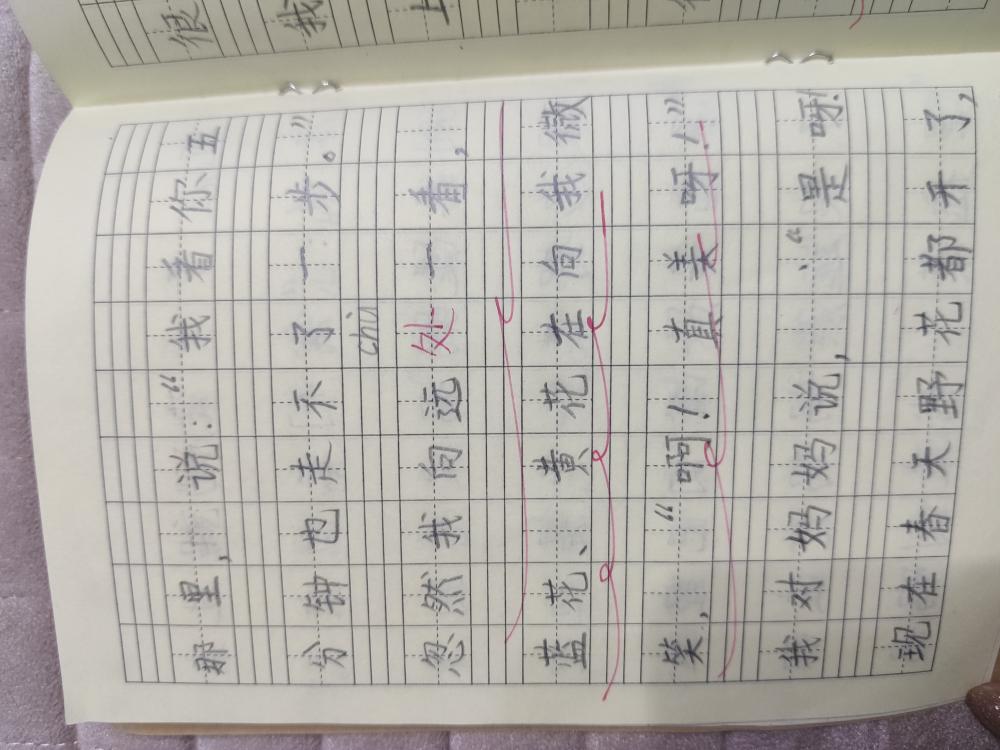 很
我
上
那里，说：“我看你五
分钟也走不了一步。”
chù
忽然我向远处一看，
蓝花、黄花在向我微
笑，“啊！真美呀！”
我对妈妈说，“是呀！
现在春天野花都开了，